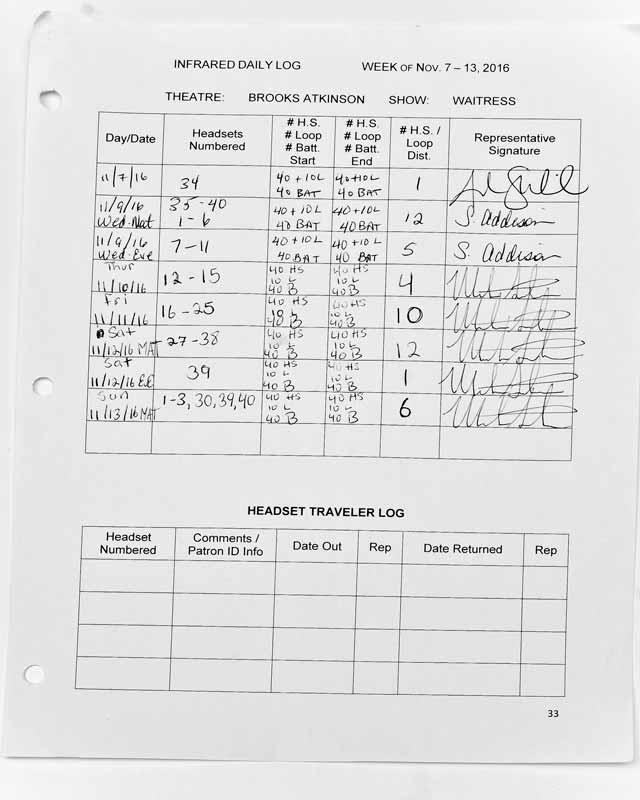 INFRARED DAILY LOG WEEK OF NOV. 7 – 13, 2016
THEATRE: BROOKS ATKINSON SHOW: WAITRESS
Day/Date Headsets Numbered # H.S. # Loop # Batt. Start # H.S. # Loop # Batt. End # H.S. / Loop Dist. Representative Signature
11/7/16 34 40+10L 40 BAT 40+10L 40 BAT 1
11/9/16 Wed-Mat 35-40 1-6 40+10L 40 BAT 40+10L 40 BAT 12 S. Addison
11/9/16 Wed-Eve 7-11 40+10L 40 BAT 40+10L 40 BAT 5 S. Addison
Thur 11/10/16 12-15 40 HS 10 L 40 B 40 HS 10 L 40 B 4
Fri 11/11/16 16-25 40 HS 10 L 40 B 40 HS 10 L 40 B 10
Sat 11/12/16 MAT 27-38 40 HS 10 L 40 B 40 HS 10 L 40 B 12
Sat 11/12/16 39 40 HS 10 L 40 B 40 HS 10 L 40 B 1
Sun 11/13/16 MAT 1-3, 30, 39, 40 40 HS 10 L 40 B 40 HS 10 L 40 B 6
HEADSET TRAVELER LOG
Headset Numbered Comments / Patron ID Info Date Out Rep Date Returned Rep
33